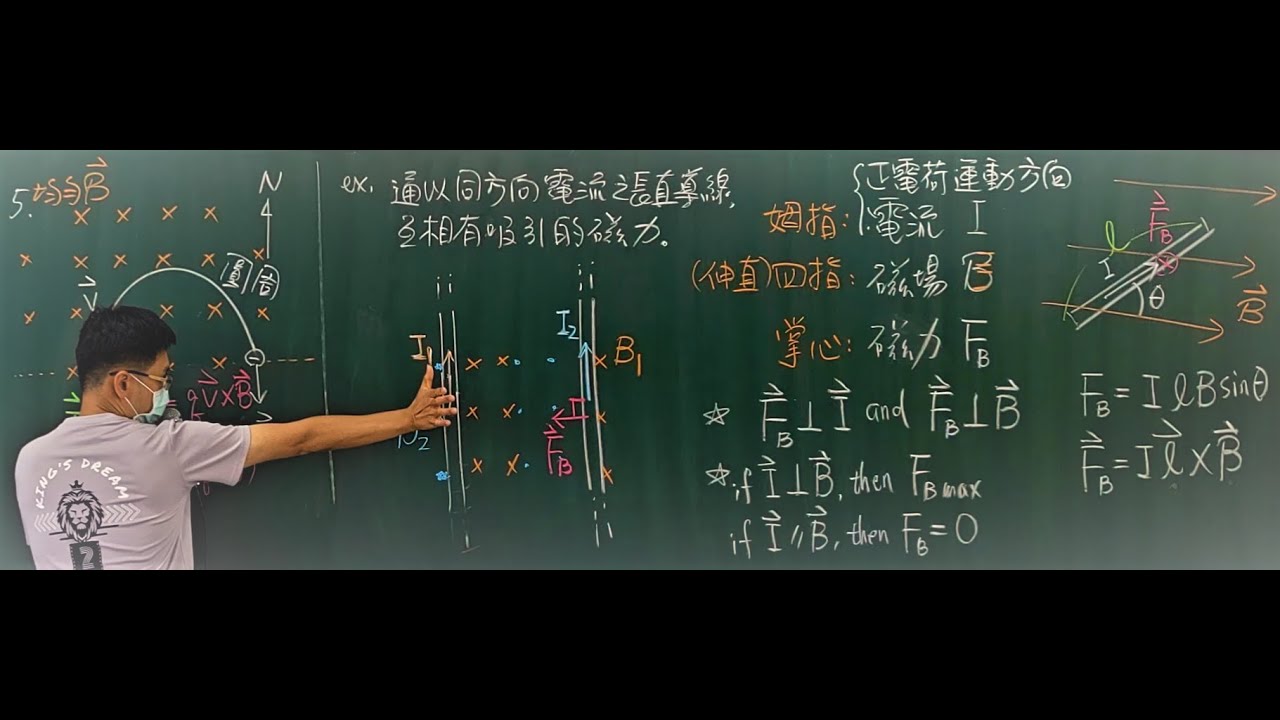 5. 均勻B
N
V
量值
qV×B
ex. 通以同方向電流之長直導線,
互相有吸引的磁力。
I₁
I₂
B₁
I
F_B
N₂
正電荷運動方向
姆指: 電流 I
(伸直)四指: 磁場 B
掌心: 磁力 F_B
☆ F_B⊥I and F_B⊥B
☆ if I⊥B, then F_B max
if I∥B, then F_B=0
F_B
l
I
θ
B
F_B=IlBsinθ
F_B=Il×B
KING'S DREAM
2